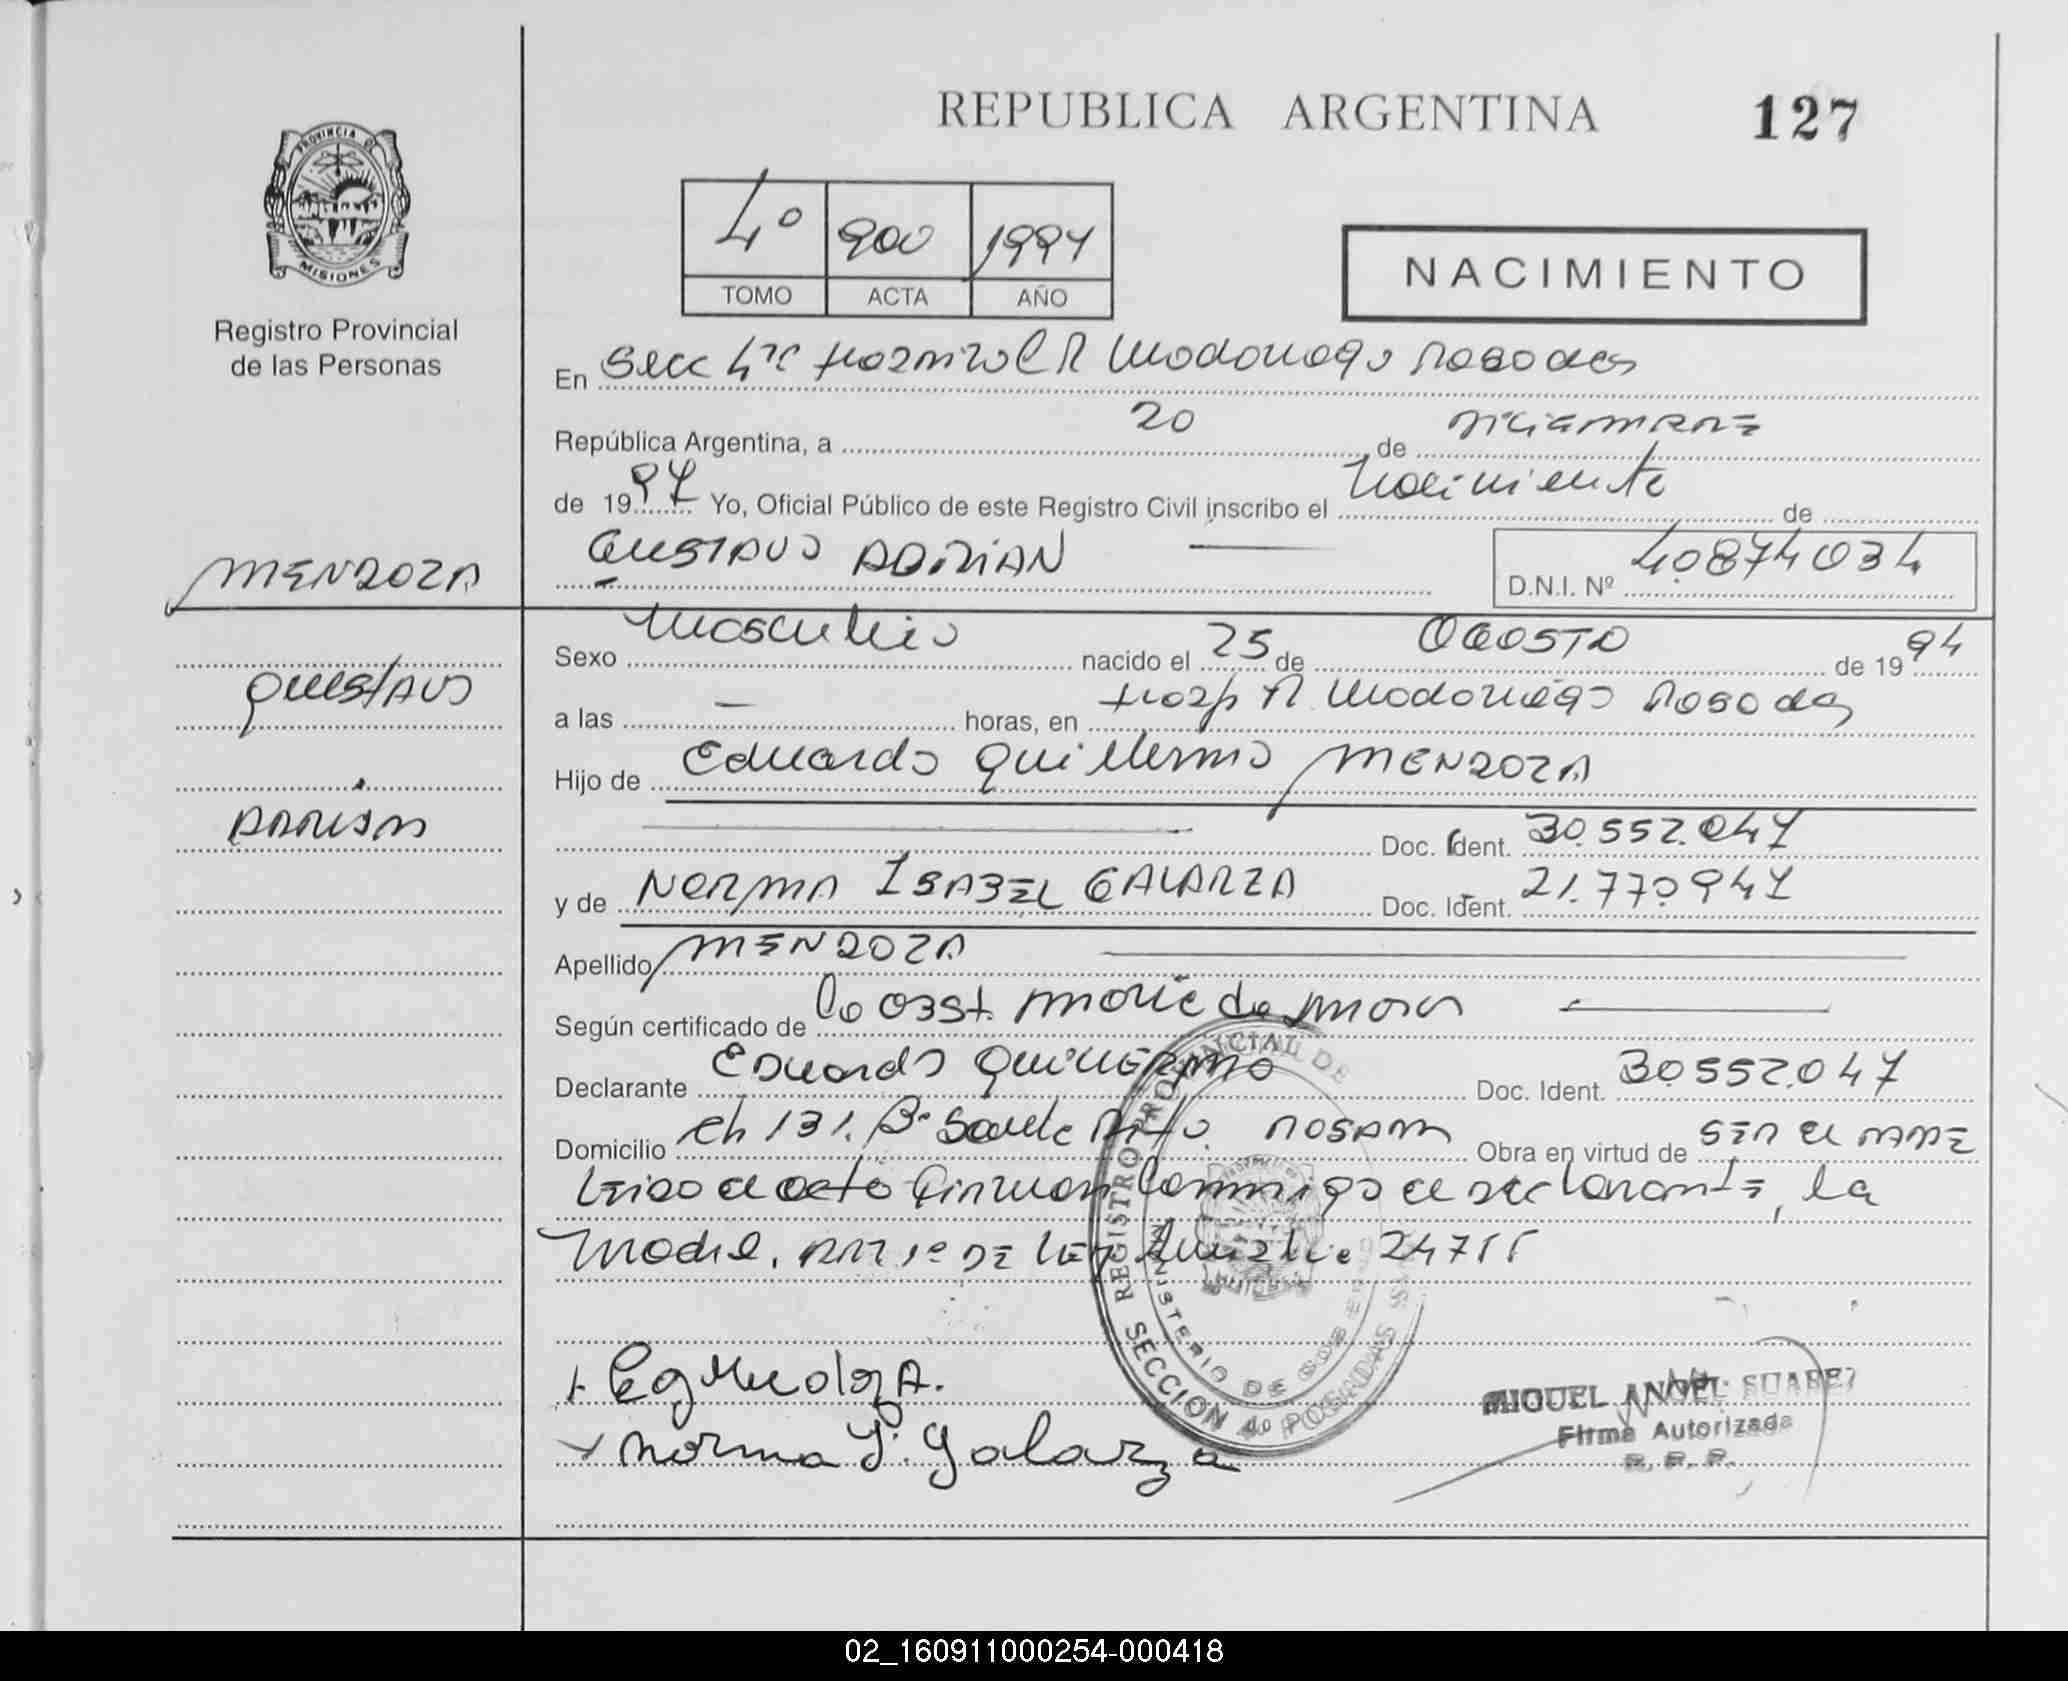 REPUBLICA ARGENTINA 127
PROVINCIA DE
MISIONES
Registro Provincial
de las Personas
4º 900 1997
TOMO ACTA AÑO
NACIMIENTO
En Secc 4ta Hospital R Madariaga Posadas
República Argentina, a 20 de DICIEMBRE
de 1997 Yo, Oficial Público de este Registro Civil inscribo el Nacimiento de
GUSTAVO ADRIAN
D.N.I. Nº 40874034
MENDOZA
GUSTAVO
ADRIAN
Sexo Masculino nacido el 25 de AGOSTO de 1994
a las — horas, en Hosp R. Madariaga Posadas
Hijo de Eduardo Guillermo MENDOZA
Doc. Ident. 30.552.047
y de NORMA ISABEL GALARZA Doc. Ident. 21.770947
Apellido MENDOZA
Según certificado de la Obst.
Declarante Eduardo GUILLERMO Doc. Ident. 30552.047
Domicilio Ch 131. Bº Sta. POSADAS Obra en virtud de SER el PADRE
Leido el acta firman conmigo el declarante, la
Madre. ART 1º DE LEY 24755
REGISTRO PROVINCIAL DE LAS
MINISTERIO DE GOBIERNO
SECCION 4o POSADAS
Norma I. Galarza
MIGUEL ANGEL SUAREZ
Firma Autorizada
R. P. P.
02_160911000254-000418